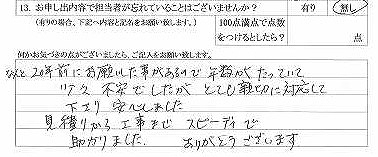 13. お申し出内容で担当者が忘れていることはございませんか？ 有り 無し
(有りの場合、下記へ内容と記名をお願い致します。)
100点満点で点数をつけるとしたら？ 点
何かお気づきの点がございましたら、ご記入をお願い致します。
20年前にお願いした事があるので年数がたっていて
少々不安でしたがとても親切に対応して
下さり安心しました
見積りから工事までスピーディで
助かりました。ありがとうございます